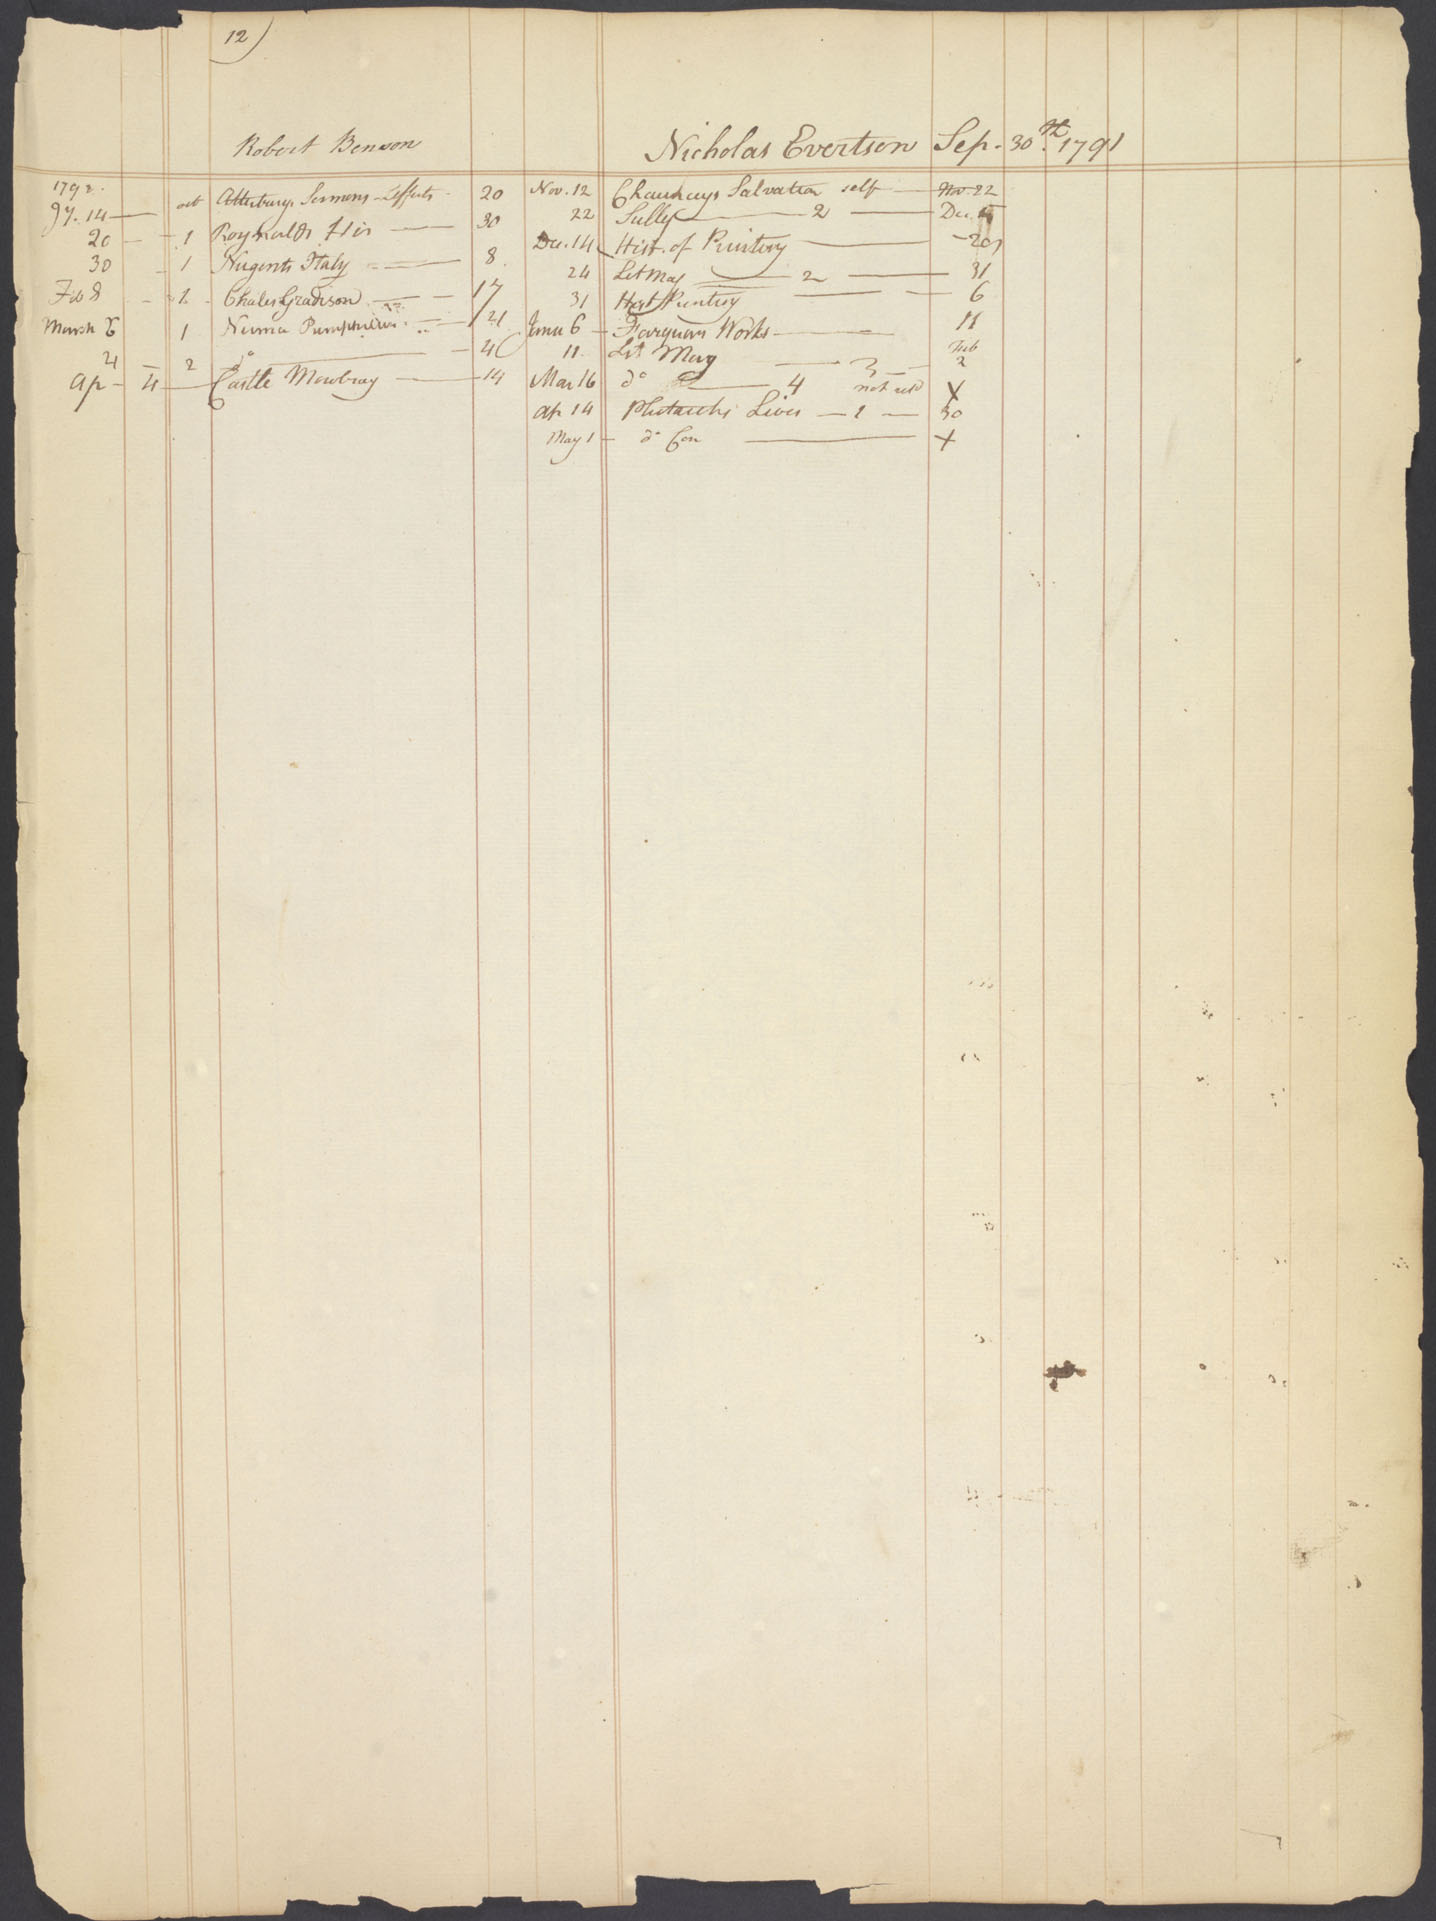 12)
Robert Benson
1792.
Jy. 14 — oct Atterburys Sermons - Lefferts - 20
20 — 1 Roynolds His — 30
30 — 1 Nugents Italy — 8
Feb 8 — 1 Chales Grandson — 17
March 6 1 Numa Pumphilius — 21
21 — 2 do — 4
Ap - 4 — Castle Mowbray — 14
Nicholas Evertson Sep. 30th. 1791
Nov. 12 Chauncys Salvation self — Nov. 22
22 Sully — 2 — Dec.
Dec. 14 Hist. of Printing — 20
24 Lit Mag — 2 — 31
31 Hist Printing — 6
Janu 6 — Farquars Works — 11
11. Lit Mag — 3 — Feb 2
Mar 16 do — 4 not retd X
Ap 14 Plutarchs Lives — 1 — 30
May 1 — do Con — X